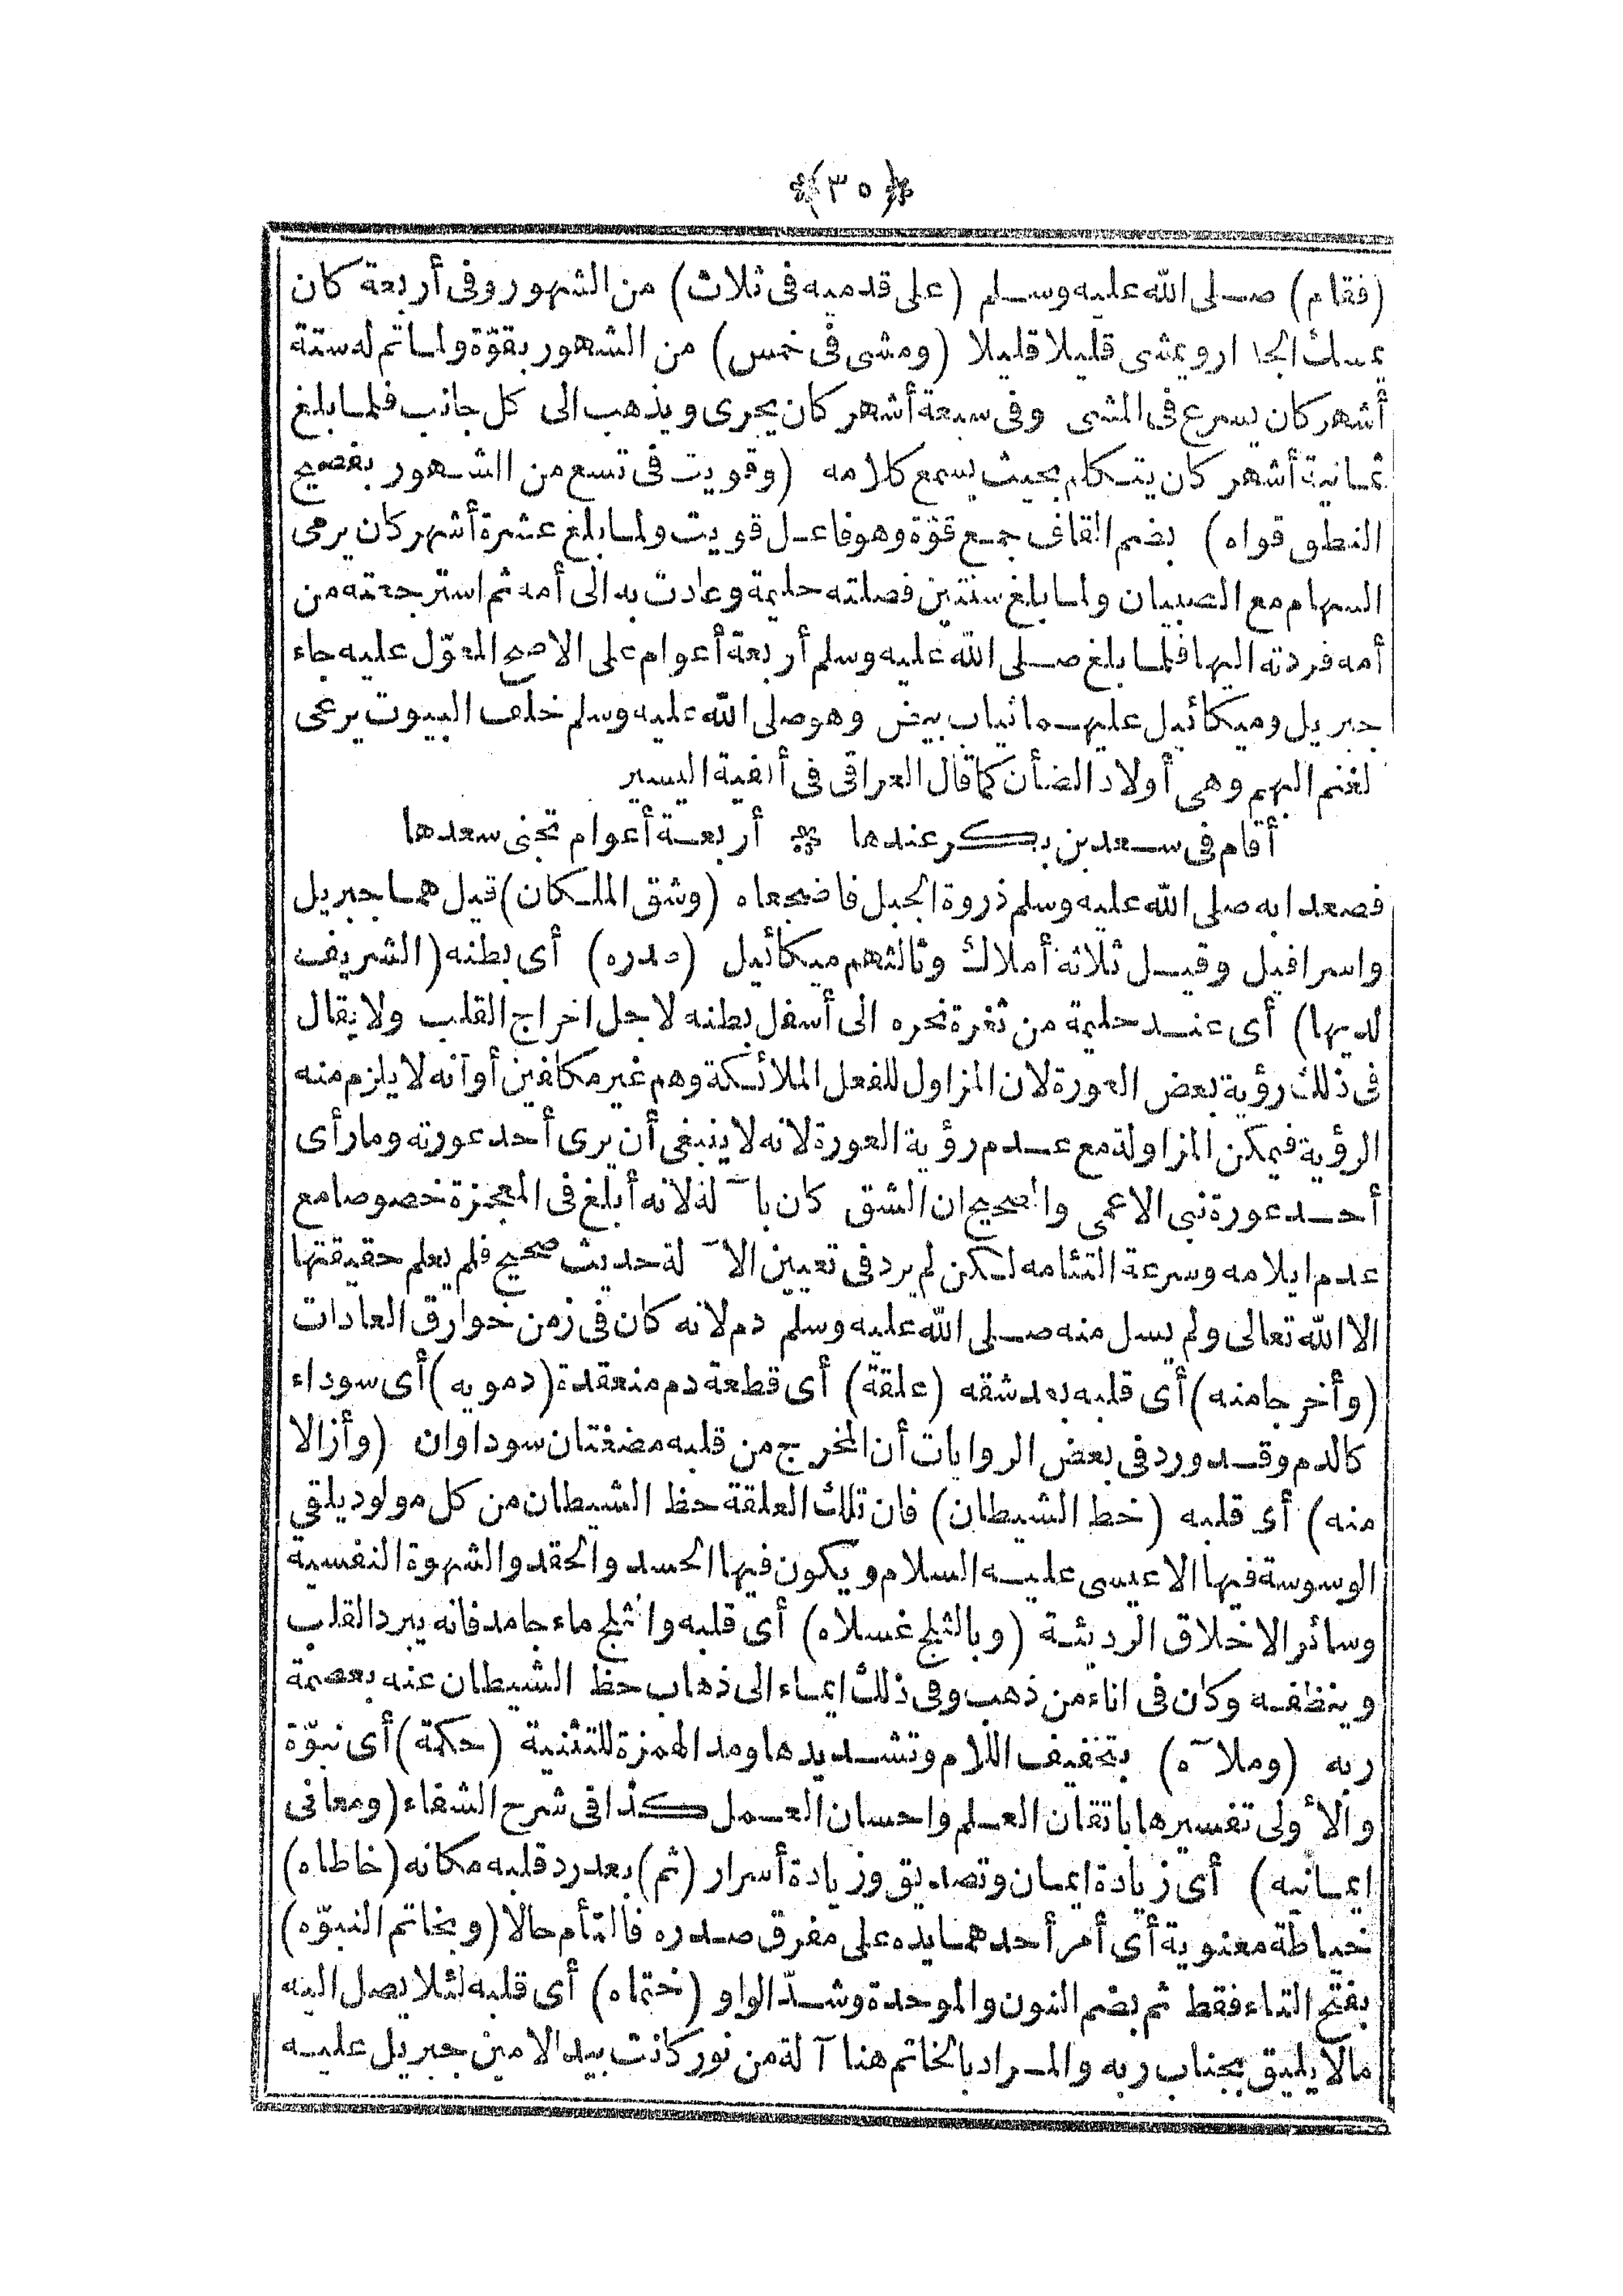 ﴿٣٥﴾
(فقام) صلى الله عليه وسلم (على قدميه فى ثلاث) من الشهور وفى أربعة كان
يمسك الجدار ويمشى قليلا قليلا (ومشى فى خمس) من الشهور بقوّة ولما تم له ستة
أشهر كان يسرع فى المشى وفى سبعة أشهر كان يجرى ويذهب الى كل جانب فلما بلغ
ثمانية أشهر كان يتكلم بحيث يسمع كلامه (وقويت فى تسع من الشهور بفصيح
النطق قواه) بضم القاف جمع قوّة وهو فاعل قويت ولما بلغ عشرة أشهر كان يرمى
السهام مع الصبيان ولما بلغ سنتين فصلته حليمة وعادت به الى أمه ثم استرجعته من
أمه فردته اليها فلما بلغ صلى الله عليه وسلم أربعة أعوام على الاصح المعوّل عليه جاء
جبريل وميكائيل عليهما ثياب بيض وهو صلى الله عليه وسلم خلف البيوت يرعى
لغنم البهم وهى أولاد الضأن كما قال العراقى فى ألفية السير
أقام فى سعد بن بكر عندها * أربعة أعوام تجنى سعدها
فصعدا به صلى الله عليه وسلم ذروة الجبل فاضجعاه (وشق الملكان) قيل هما جبريل
واسرافيل وقيل ثلاثة أملاك وثالثهم ميكائيل (صدره) أى بطنه (الشريف
لديها) أى عند حليمة من ثغرة نحره الى أسفل بطنه لاجل اخراج القلب ولا يقال
فى ذلك رؤية بعض العورة لان المزاول للفعل الملائكة وهم غير مكلفين أو أنه لا يلزم منه
الرؤية فيمكن المزاولة مع عدم رؤية العورة لانه لا ينبغى أن يرى أحد عورته وما رأى
أحد عورة نبى الا عمى والصحيح ان الشق كان بآلة لانه أبلغ فى المعجزة خصوصا مع
عدم ايلامه وسرعة التئامه لكن لم يرد فى تعيين الآلة حديث صحيح فلم يعلم حقيقتها
الا الله تعالى ولم يسل منه صلى الله عليه وسلم دم لانه كان فى زمن خوارق العادات
(وأخرجا منه) أى قلبه بعد شقه (علقة) أى قطعة دم منعقدة (دمويه) أى سوداء
كالدم وقد ورد فى بعض الروايات أن المخرج من قلبه مضغتان سوداوان (وأزالا
منه) أى قلبه (خط الشيطان) فان تلك العلقة حظ الشيطان من كل مولود يلقى
الوسوسة فيها الا عيسى عليه السلام ويكون فيها الحسد والحقد والشهوة النفسية
وسائر الاخلاق الرديئة (وبالثلج غسلاه) أى قلبه والثلج ماء جامد فانه يبرد القلب
وينظفه وكان فى اناء من ذهب وفى ذلك ايماء الى ذهاب حظ الشيطان عنه بعصمة
ربه (وملآه) بتخفيف اللام وتشديدها ومد الهمزة للتثنية (حكمة) أى نبوّة
والأولى تفسيرها باتقان العلم واحسان العمل كذا فى شرح الشفاء (ومعانى
ايمانيه) أى زيادة ايمان وتصديق وزيادة أسرار (ثم) بعد رد قلبه مكانه (خاطاه)
خياطة معنوية أى أمر أحدهما يده على مفرق صدره فالتأم حالا (وبخاتم النبوّه)
بفتح التاء فقط ثم بضم النون والموحدة وشدّ الواو (ختماه) أى قلبه لئلا يصل اليه
مالا يليق بجناب ربه والمراد بالخاتم هنا آلة من نور كانت بيد الامين جبريل عليه